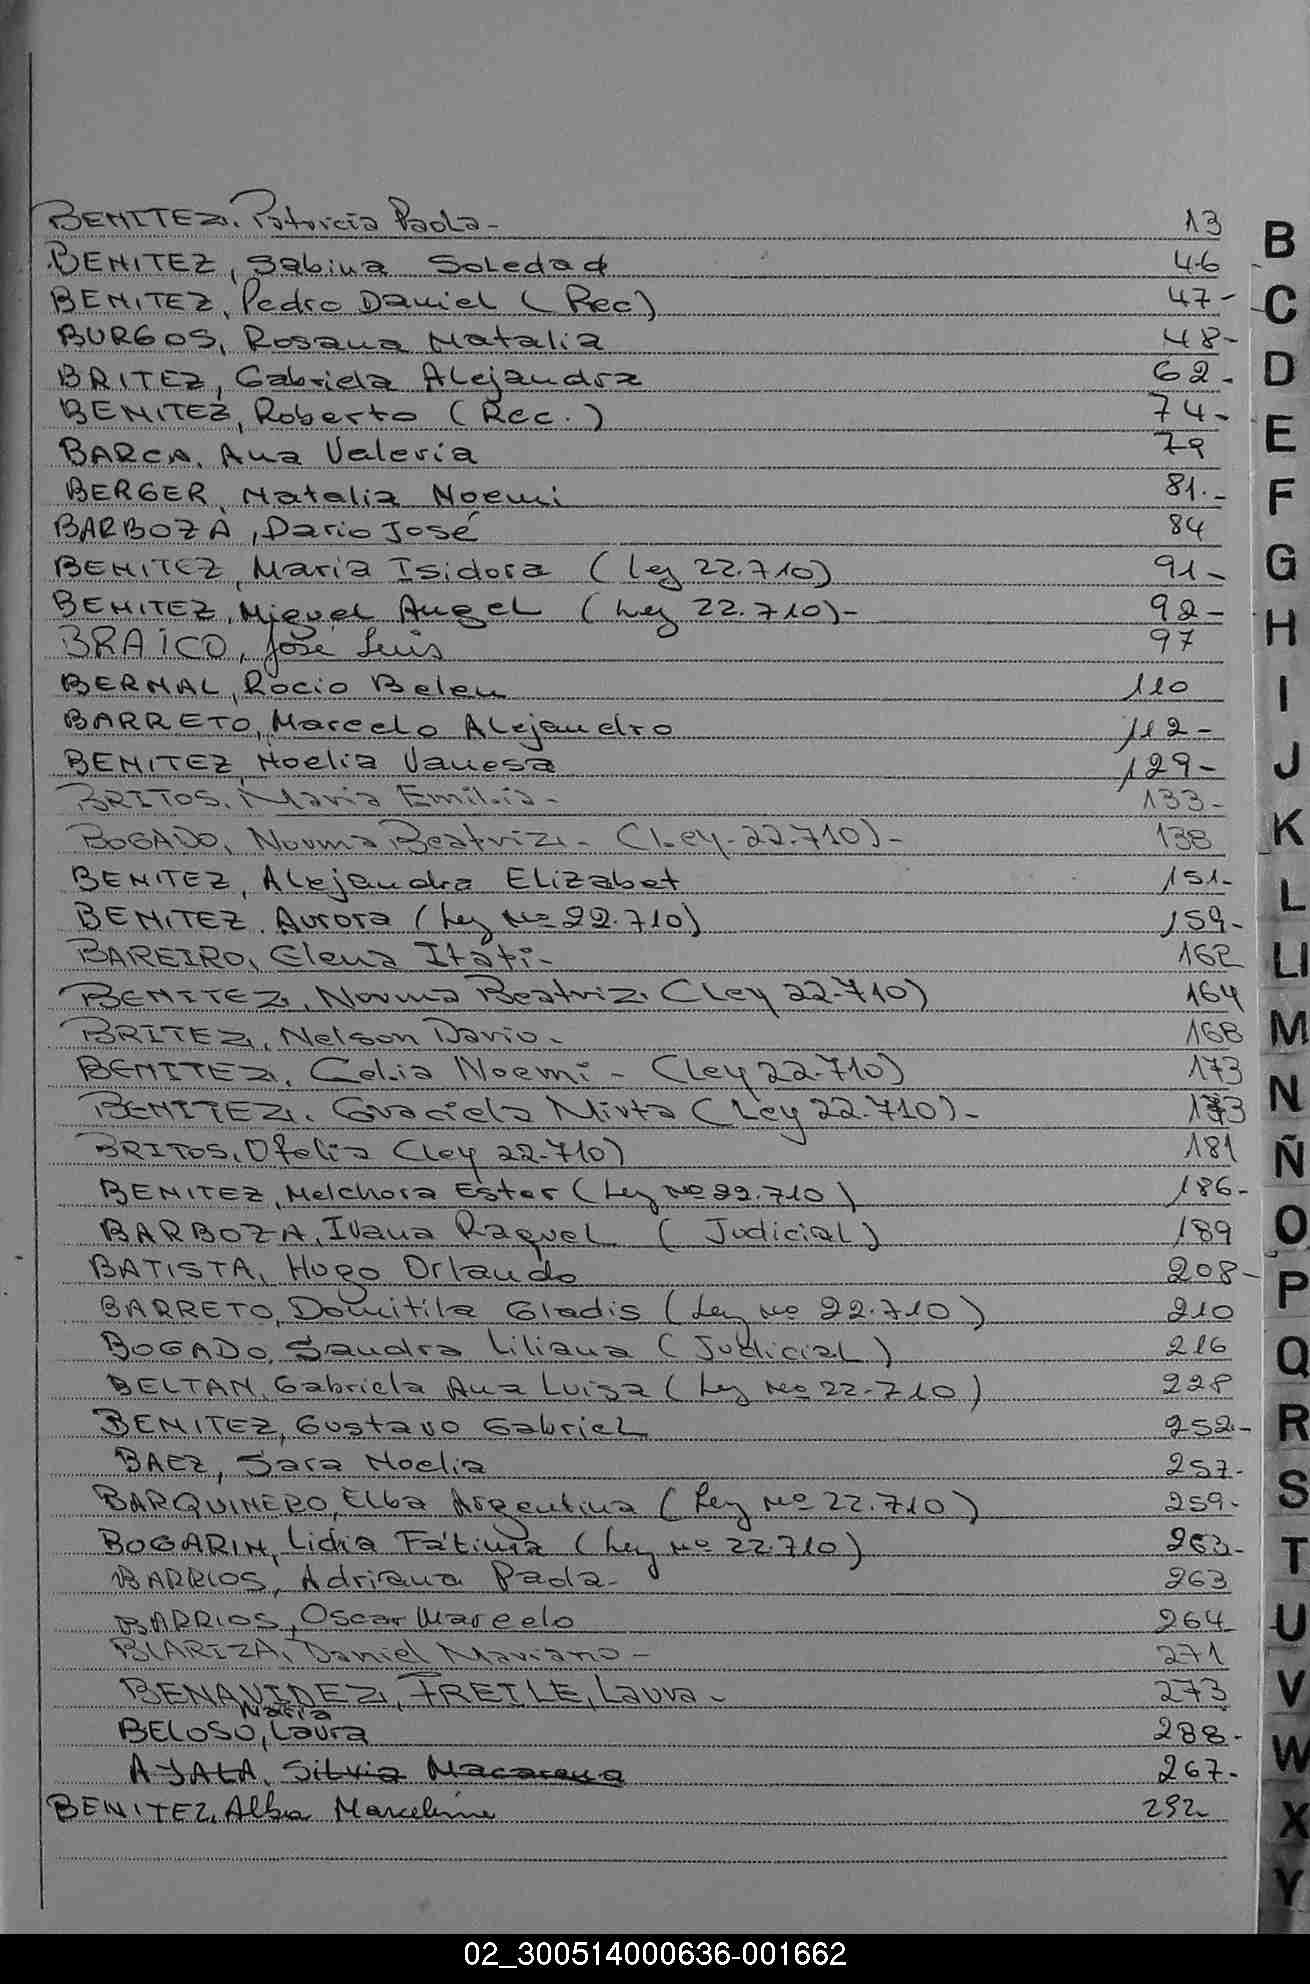 BENITEZ, Patricia Paola- 13
BENITEZ, Sabina Soledad 46
BENITEZ, Pedro Daniel (Rec) 47-
BURGOS, Rosana Natalia 48-
BRITEZ, Gabriela Alejandra 62-
BENITEZ, Roberto (Rec.) 74-
BARCA, Ana Valeria 79
BERGER, Natalia Noemi 81.-
BARBOZA, Dario José 84
BENITEZ, Maria Isidora (Ley 22.710) 91-
BENITEZ, Miguel Angel (Ley 22.710)- 92-
BRAICO, José Luis 97
BERNAL, Rocio Belen 110
BARRETO, Marcelo Alejandro 112-
BENITEZ, Noelia Vanesa 129-
BRITOS, Maria Emilia- 133-
BOGADO, Norma Beatriz- (Ley-22.710)- 138
BENITEZ, Alejandra Elizabet 151-
BENITEZ, Aurora (Ley Nº 22.710) 159-
BAREIRO, Elena Itati- 162
BENITEZ, Norma Beatriz. (Ley 22.710) 164
BRITEZ, Nelson Dario- 168
BENITEZ, Celia Noemi - (Ley 22.710) 173
BENITEZ, Graciela Mirta (Ley 22.710)- 173
BRITOS, Ofelia (Ley 22.710) 181
BENITEZ, Melchora Ester (Ley Nº 22.710) 186-
BARBOZA, Ivana Raquel (Judicial) 189
BATISTA, Hugo Orlando 208-
BARRETO, Domitila Gladis (Ley Nº 22.710) 210
BOGADO, Sandra Liliana (Judicial) 216
BELTAN, Gabriela Ana Luisa (Ley Nº 22.710) 228
BENITEZ, Gustavo Gabriel 252-
BAEZ, Sara Noelia 257-
BARQUINERO, Elba Argentina (Ley Nº 22.710) 259-
BOGARIN, Lidia Fátima (Ley Nº 22.710) 263-
BARRIOS, Adriana Paola- 263
BARRIOS, Oscar Marcelo 264
BIARIZA, Daniel Mariano- 271
BENAVIDEZ, FREILE, Laura- 273
Maria
BELOSO, Laura 288-
AYALA, Silvia Macarena 267-
BENITEZ, Alba Marcelina 292
B
C
D
E
F
G
H
I
J
K
L
Ll
M
N
Ñ
O
P
Q
R
S
T
U
V
W
X
Y
02_300514000636-001662